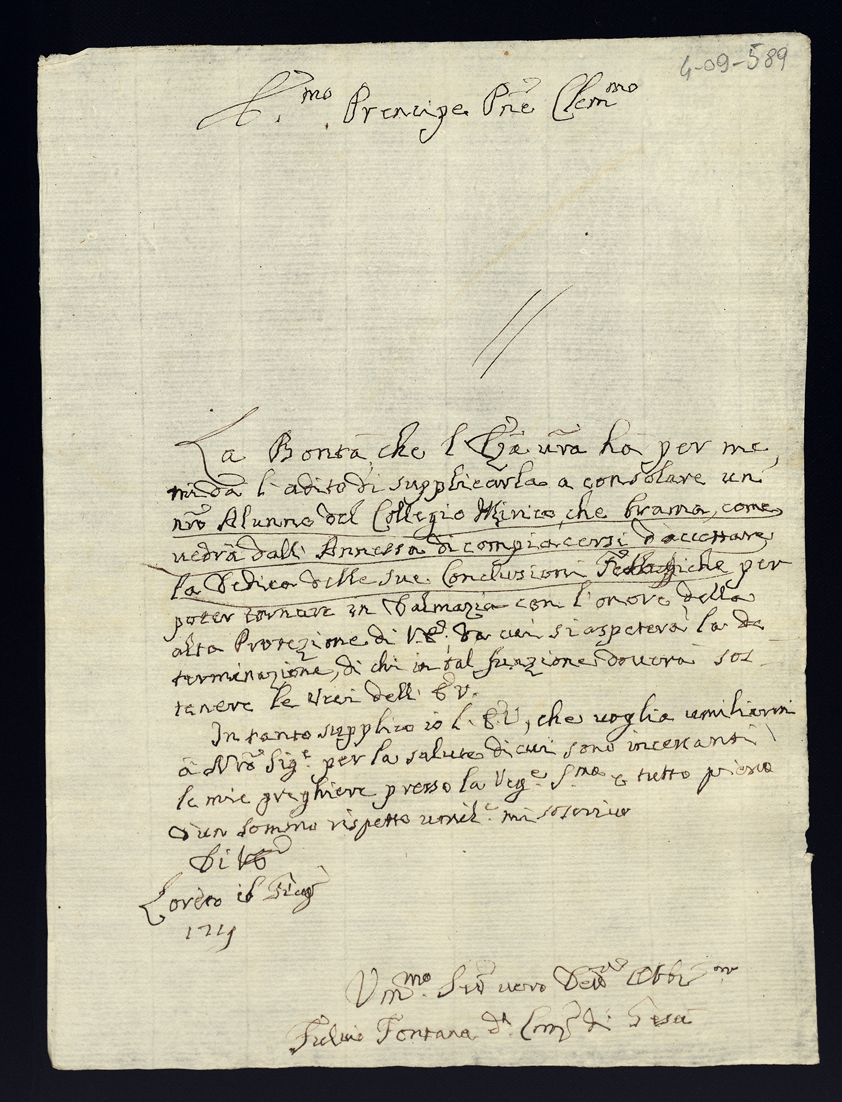 4-09-589
E.mo Prencipe Pne Clemmo
La Bontà, che l'Ea vra ha per me,
mi dà l'adito di supplicarla a consolare un
nro Alunno del Collegio Ilirico, che brama, come
vedrà dall'Annessa di compiacersi d'accettare
la Dedica delle sue Conclusioni per
poter tornare in Dalmazia con l'onore della
alta Protezione di V.E, da cui si aspeterà la de
terminazione, di chi in tal funzione dovera sos-
tenere le veci dell'E.V.
In tanto supplico io l'E.V, che voglia umiliarmi
à Nro Sige per la salute di cui sono incessanti
le mie preghiere presso la Verge Sma e tutto pieno
d'un sommo rispetto umile mi soscrivo
Di VE
Loreto 16
Ummo Servo vero Devo Obbmo
Fulvio Fontana da Compa di Gesù